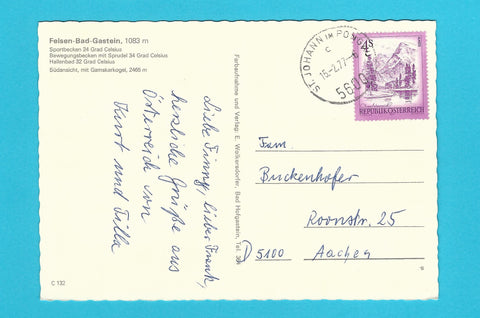 Felsen-Bad-Gastein, 1083 m
Sportbecken 24 Grad Celsius
Bewegungsbecken mit Sprudel 34 Grad Celsius
Hallenbad 32 Grad Celsius
Südansicht, mit Gamskarkogel, 2465 m
Liebe Finny, lieber Frank,
herzliche Grüße aus
Österreich von
Kurt und Tilla
C 132
Farbaufnahme und Verlag: E. Wolkersdorfer, Bad Hofgastein, Tel.
ST. JOHANN IM PON
c
16.-2.77-
5600
4S
REPUBLIK ÖSTERREICH
Fam.
Buckenhofer
Roonstr. 25
D 5100 Aachen